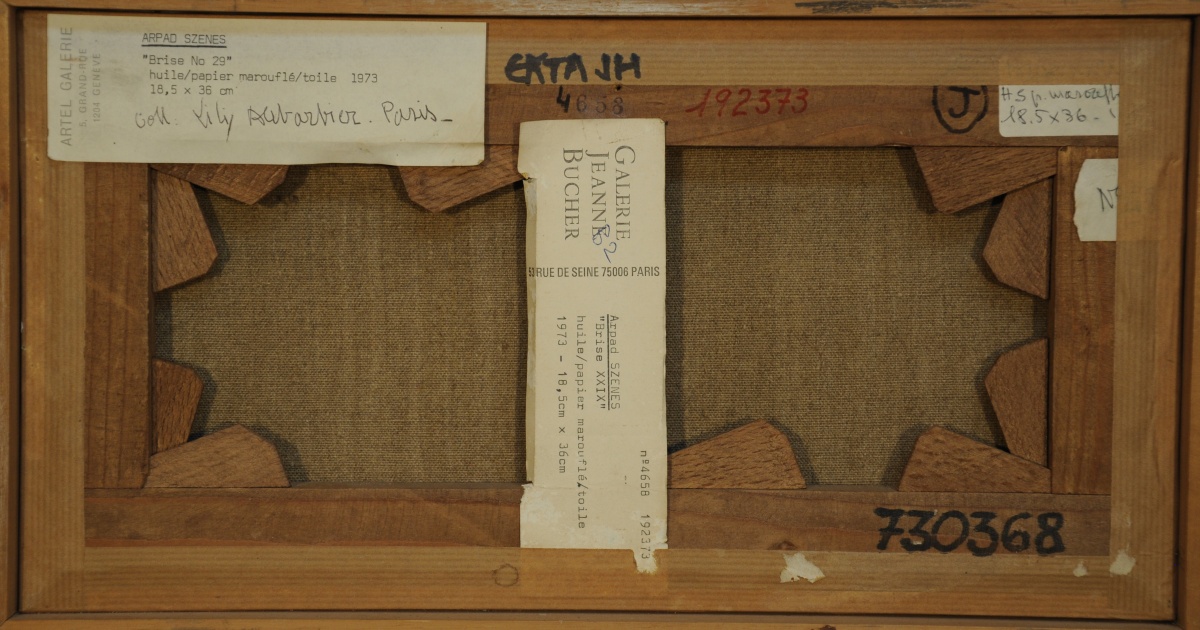 ARTEL GALERIE
5, GRAND-RUE
1204 GENEVE
ARPAD SZENES
"Brise No 29"
huile/papier marouflé/toile 1973
18,5 x 36 cm
coll. Lily Paris_
EKTA JH
4658
192373
J
HSp. marouf
18.5x36-
N
GALERIE
JEANNE
BUCHER
52
53 RUE DE SEINE 75006 PARIS
Arpad SZENES
"Brise XXIX"
huile/papier marouflé/toile
1973 - 18,5cm x 36cm
nº4658 192373
730368